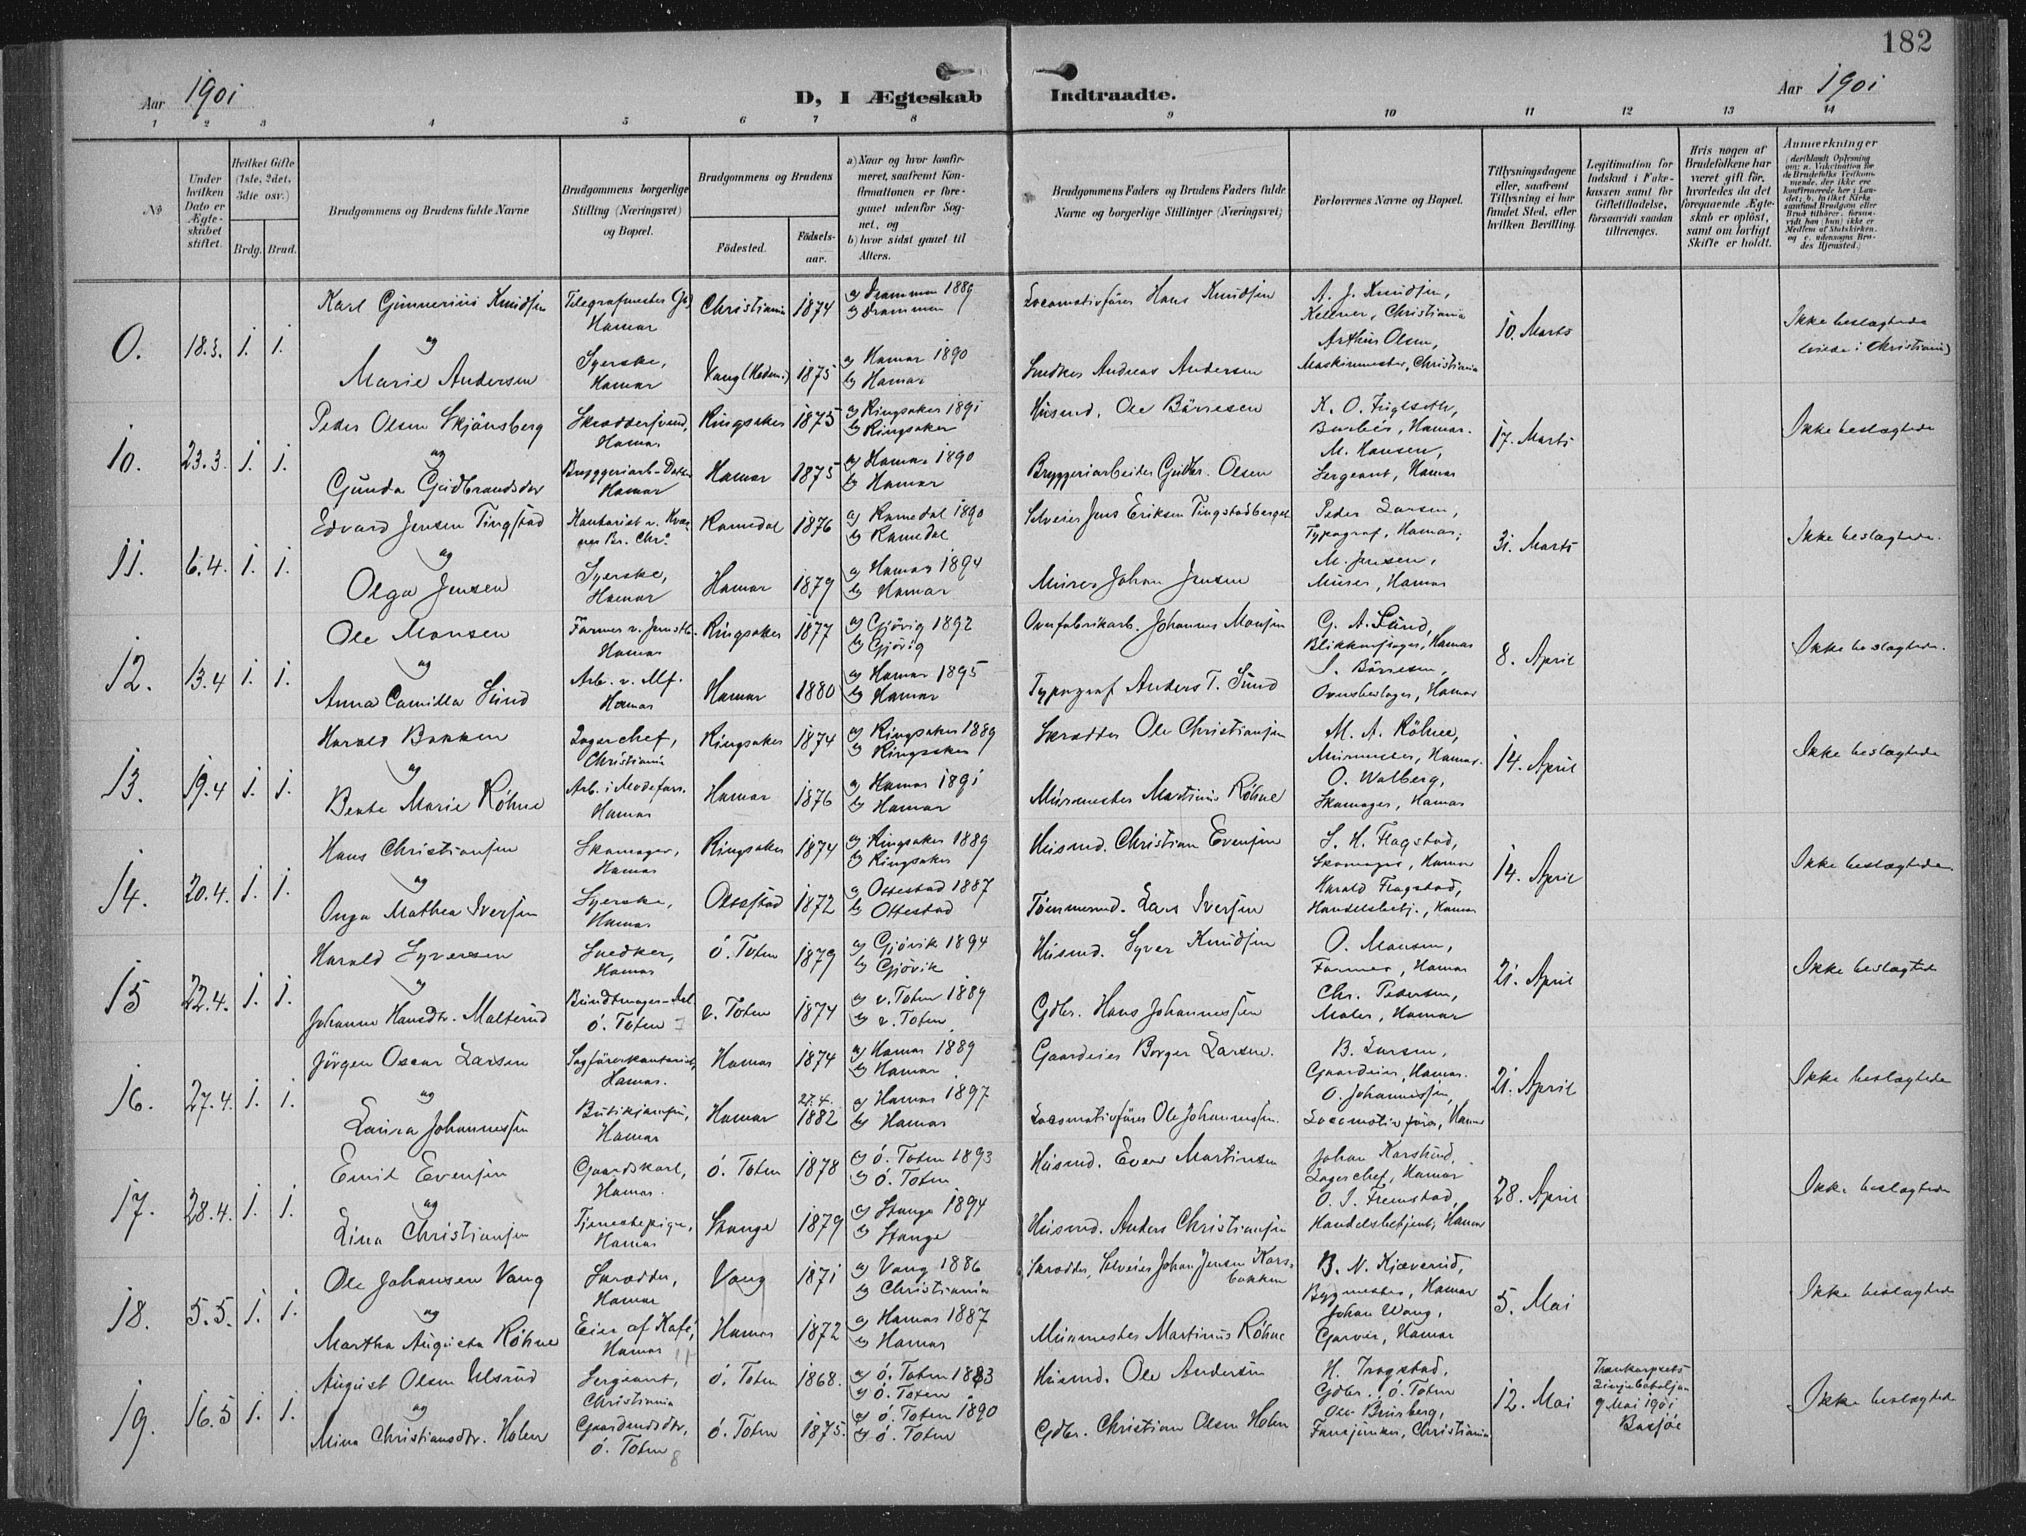 182
Aar 1901
D, I Ægteskab Indtraadte.
Aar 1901
1 2 3 4 5 6 7 8 9 10 11 12 13 14
№
Under hvilken Dato er Ægteskabet stiftet.
Hvilket Gifte (1ste, 2det, 3die osv.)
Brdg. Brud.
Brudgommens og Brudens fulde Navne
Brudgommens borgerlige Stilling (Næringsvei) og Bopæl.
Brudgommens og Brudens
Fødested. Fødselsaar.
a) Naar og hvor konfirmeret, saafremt Konfirmationen er foregaaet udenfor Sognet, og
b) hvor sidst gaaet til Alters.
Brudgommens Faders og Brudens Faders fulde Navne og borgerlige Stillinger (Næringsvei)
Forlovernes Navne og Bopæl.
Tillysningsdagene eller, saafremt Tillysning ei har fundet Sted, efter hvilken Bevilling.
Legitimation for Indskud i Enkekassen samt for Giftetilladelse, forsaavidt saadan tiltrænges.
Hvis nogen af Brudefolkene har været gift før, hvorledes da det foregaaende Ægteskab er opløst, samt om lovligt Skifte er holdt.
Anmerkninger
0. 18.3. 1. 1.
Karl Gunnerius Knudsen Telegrafmester Christiania 1874 a) Drammen 1889 Locomotivfører Hans Knudsen A. J. Knudsen,
Hamar b) Drammen Kelener, Christiania 10. Marts Ikke beslægtede
og Arthur Olsen, (viede i Christiania)
Marie Andersen Syerske, Hamar Vang (Hedm.) 1875 a) Hamar 1890 b) Hamar Snedker Andreas Andersen Maskinmester, Christiania
10. 23.3. 1. 1.
Peder Olsen Skjønsberg Skræddersvend, Hamar Ringsaker 1875 a) Ringsaker 1891 b) Ringsaker Husmd. Ole Børresen
Barber, Hamar. 17. Marts Ikke beslægtede
og M. Hansen,
Gunda Gudbrandsdtr Hamar Hamar 1875 a) Hamar 1890 b) Hamar Bryggeriarbeider Gudbr. Olsen Sergeant, Hamar
11. 6.4. 1. 1.
Edvard Jensen Tingstad Romedal 1876 a) Romedal 1890 b) Romedal Selveier Jens Eriksen Tingstadberget Peder Larsen,
Typograf, Hamar; 31. Marts Ikke beslægtede.
og M. Jensen,
Olga Jensen Syerske, Hamar Hamar 1879 a) Hamar 1894 b) Hamar Murer Johan Jensen Murer, Hamar
12. 13.4 1. 1.
Ole Monsen Former v. Jernstb. Hamar Ringsaker 1877 a) Gjøvig 1892 b) Gjøvig Johannes Monsen G. A. Lund,
Hamar 8. April Ikke beslægtede.
og Børresen,
Anna Camilla Lund Arb. v. Mf. Hamar Hamar 1880 a) Hamar 1895 b) Hamar Typograf Anders T. Lund Hamar
13. 19.4 1. 1.
Harald Bakken Lagerchef, Christiania Ringsaker 1874 a) Ringsaker 1889 b) Ringsaker Skrædder Ole Christiansen M. A. Røhne,
Murmester, Hamar. 14. April Ikke beslægtede
og O. Walberg,
Bente Marie Røhne Hamar Hamar 1876 a) Hamar 1891 b) Hamar Murmester Martinus Røhne Skomager, Hamar
14. 20.4. 1. 1.
Hans Christiansen Skomager, Hamar Ringsaker 1874 a) Ringsaker 1889 b) Ringsaker Husmd. Christian Evensen S. H. Flagstad,
Skomager, Hamar 14. April Ikke beslægtede
og Harald Flagstad,
Mathea Iversen Syerske, Hamar Ottestad 1872 a) Ottestad 1887 b) Ottestad Tømmermd. Lars Iversen Handelsbetj., Hamar
15 22.4. 1. 1.
Harald Syversen Snedker, Hamar ö. Toten 1879 a) Gjøvik 1894 b) Gjøvik Husmd. Syver Knudsen O. Monsen,
Former, Hamar 21. April Ikke beslægtede
og Chr. Pedersen,
Johanne Hansdtr. Malterud Bundtmager-Arb. ö. Toten v. Toten 1874 a) v. Toten 1889 b) v. Toten Gdbr. Hans Johannessen Maler, Hamar
16. 27.4. 1. 1.
Jørgen Oscar Larsen Sagførerkontorist, Hamar. Hamar 1874 a) Hamar 1889 b) Hamar Gaardeier Borger Larsen. B. Larsen,
Gaardeier, Hamar. 21. April Ikke beslægtede
og O. Johannessen,
Laura Johannessen Butikjomfru, Hamar Hamar 27.4. 1882 a) Hamar 1897 b) Hamar Locomotivfører Ole Johannessen. Locomotivfører, Hamar
17. 28.4. 1. 1.
Emil Evensen Gaardskarl, Hamar. ö. Toten 1878 a) ö. Toten 1893 b) ö. Toten Husmd. Even Martinsen Johan Karslund,
Lagerchef, Hamar 28. April Ikke beslægtede
og O. J. Fremstad,
Lina Christiansen Tjenestepige, Hamar Stange 1879 a) Stange 1894 b) Stange Husmd. Anders Christiansen Handelsbetjent, Hamar
18. 5.5. 1. 1.
Ole Johansen Vang Skrædder, Hamar Vang 1871 a) Vang 1886 b) Christiania Skrædder, Selveier Johan Jensen Korsbakken B. N. Kjæverud,
Bygmester, Hamar 5. Mai Ikke beslægtede
og Johan Wang,
Martha Augusta Røhne Eier af Kafé, Hamar Hamar 1872 a) Hamar 1887 b) Hamar Murmester Martinus Røhne Garver, Hamar
19. 16.5 1. 1.
August Olsen Ulsrud Sergeant, Christiania ö. Toten 1868. a) ö. Toten 1883 b) ö. Toten Husmd. Ole Andersen H. Tragstad,
Gdbr. ö. Toten 12. Mai 9 Mai 1901 Ikke beslægtede
og
Mina Christiansdtr. Holen Gaardmdsdtr, ö. Toten 8 ö. Toten 1875. a) ö. Toten 1890 b) ö. Toten Gdbr. Christian Olsen Holen Fanejunker, Christiania